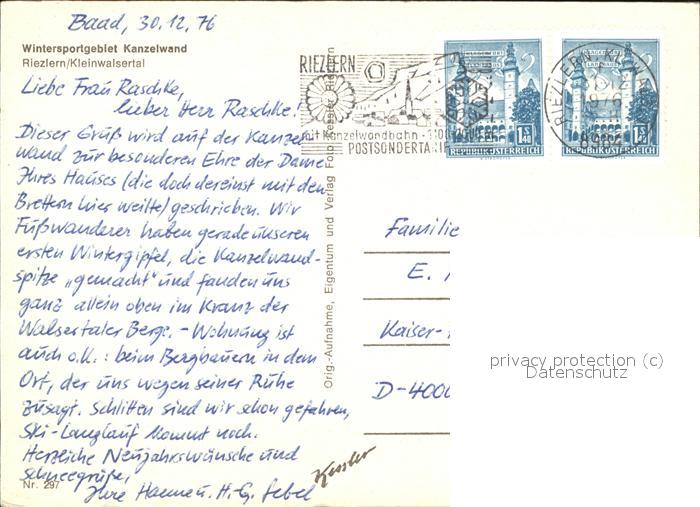 Baad, 30.12.76
Wintersportgebiet Kanzelwand
Riezlern/Kleinwalsertal
Liebe Frau Raschke,
lieber Herr Raschke.
Dieser Gruß wird auf der Kanzel-
wand zur besonderen Ehre der Dame
Ihres Hauses (die doch dereinst mit den
Brettern hier weilte) geschrieben. Wir
Fußwanderer haben gerade unseren
ersten Wintergipfel, die Kanzelwand-
spitze „gemacht" und fanden uns
ganz allein oben im Kranz der
Walsertaler Berge. - Wohnung ist
auch o.k.: beim Bergbauern in dem
Ort, der uns wegen seiner Ruhe
zusagt. Schlitten sind wir schon gefahren,
Ski-Langlauf kommt noch.
Herzliche Neujahrswünsche und
Schneegrüße,
Ihre Hanne u. H.-G.
Nr. 297
Kessler
Orig.-Aufnahme, Eigentum und Verlag Foto Kessler Riezlern
RIEZLERN
mit Kanzelwandbahn
POSTSONDERTARIF
1.50
REPUBLIK ÖSTERREICH
REPUBLIK ÖSTERREICH
RIEZLERN
Familie
E.
Kaiser-
D-4000
privacy protection (c)
Datenschutz